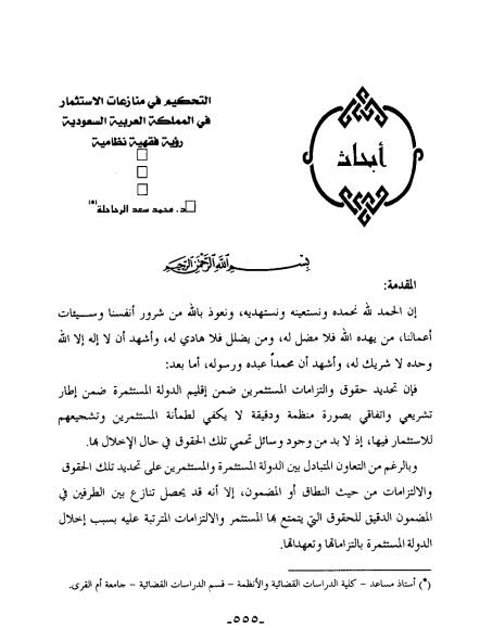 التحكيم في منازعات الاستثمار
في المملكة العربية السعودية
رؤية فقهية نظامية
د. محمد سعد الرحاحلة (*)
أبحاث
بسم الله الرحمن الرحيم
المقدمة:
إن الحمد لله نحمده ونستعينه ونستهديه، ونعوذ بالله من شرور أنفسنا وسيئات
أعمالنا، من يهده الله فلا مضل له، ومن يضلل فلا هادي له، وأشهد أن لا إله إلا الله
وحده لا شريك له، وأشهد أن محمداً عبده ورسوله، أما بعد:
فإن تحديد حقوق والتزامات المستثمرين ضمن إقليم الدولة المستثمرة ضمن إطار
تشريعي واتفاقي بصورة منظمة ودقيقة لا يكفي لطمأنة المستثمرين وتشجيعهم
للاستثمار فيها، إذ لا بد من وجود وسائل تحمي تلك الحقوق في حال الإخلال بها.
وبالرغم من التعاون المتبادل بين الدولة المستثمرة والمستثمرين على تحديد تلك الحقوق
والالتزامات من حيث النطاق أو المضمون، إلا أنه قد يحصل تنازع بين الطرفين في
المضمون الدقيق للحقوق التي يتمتع بها المستثمر والالتزامات المترتبة عليه بسبب إخلال
الدولة المستثمرة بالتزاماتها وتعهداتها.
(*) أستاذ مساعد – كلية الدراسات القضائية والأنظمة – قسم الدراسات القضائية – جامعة أم القرى.
-٥٥٥-